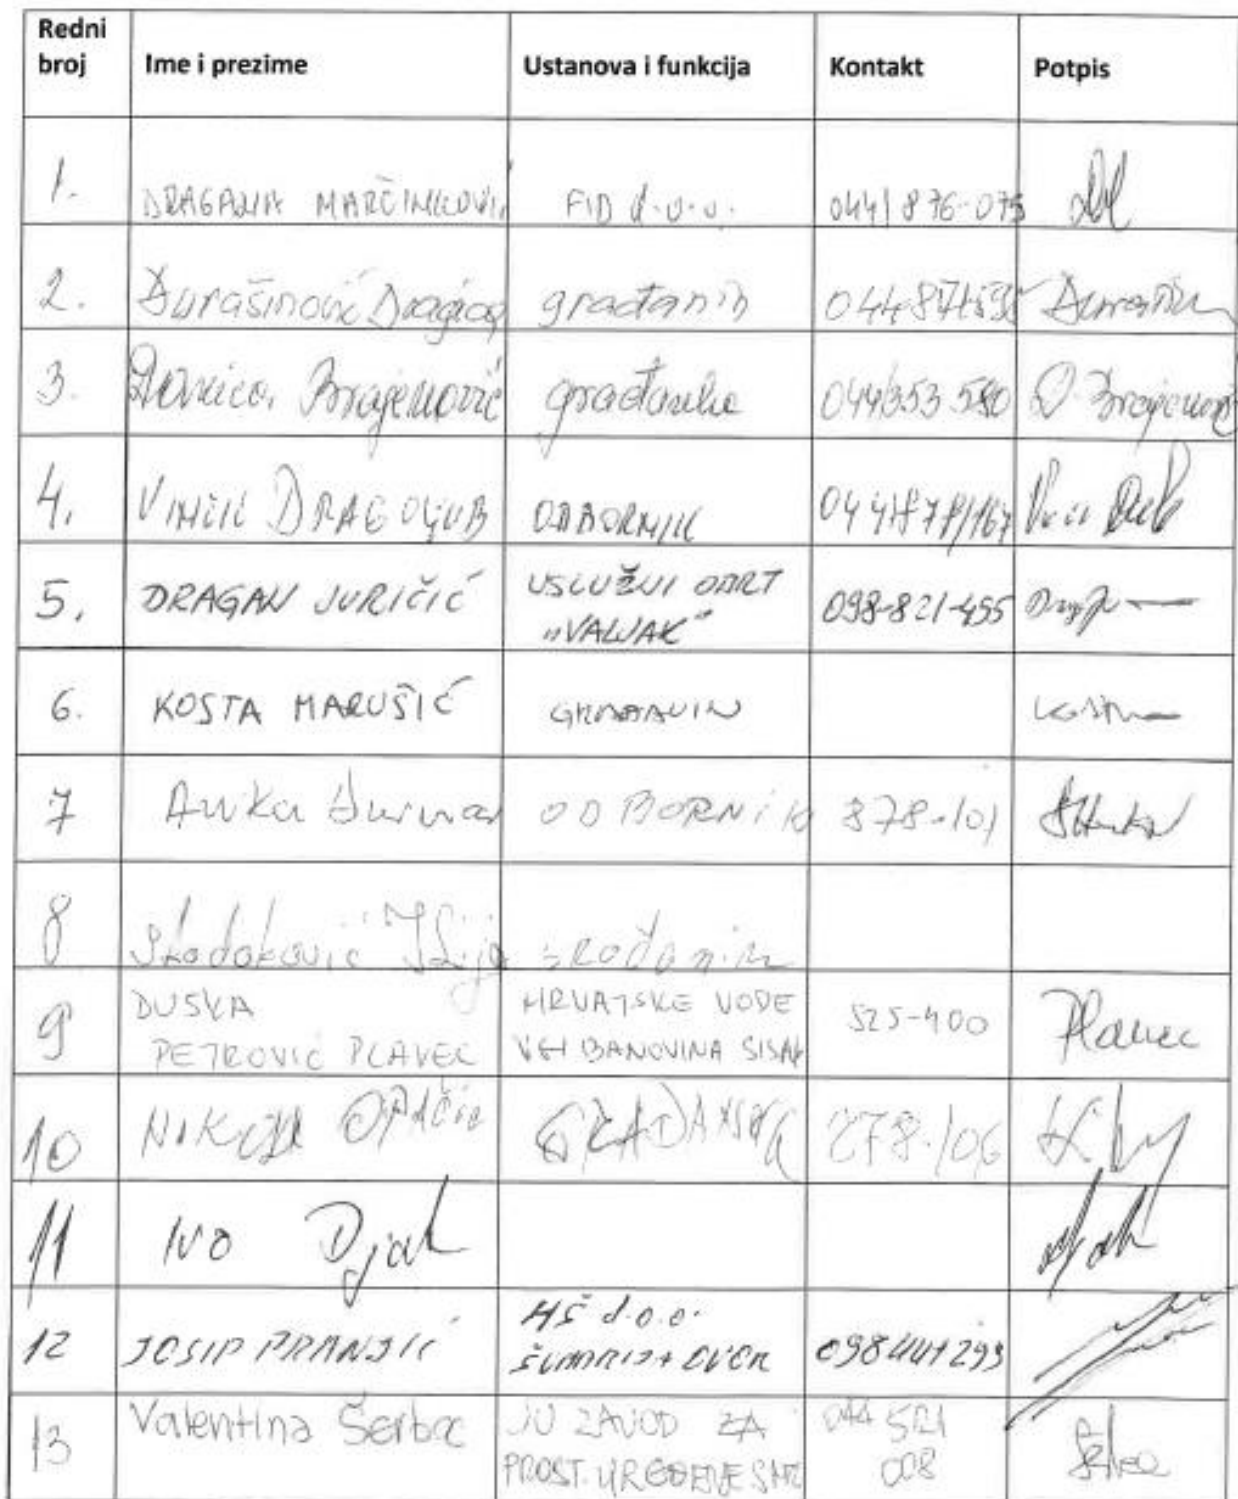 Redni broj Ime i prezime Ustanova i funkcija Kontakt Potpis
1. DRAGANA FID d.o.o. 044/876-075
2. Durašinović građanin
3. Danica Brajenović građanka 044/353 580
4. DRAGOLJUB ODBORNIK 044/878/167
5. DRAGAN JURIČIĆ USLUŽNI OBRT "VALJAK" 098-821-455
6. KOSTA MARUŠIĆ GRAĐANIN
7 Anka ODBORNIK 878-101
8 Ilija građanin
9 DUSKA PETROVIĆ PLAVEC HRVATSKE VODE VGI BANOVINA SISAK 525-400 Plavec
10 NIKOLA OPAČIĆ 878-106
11 IVO Djak
12 JOSIP PRANJIĆ HŠ d.o.o. ŠUMARIJA DVOR 098 441 293
13 Valentina Šerbec JU ZAVOD ZA PROST. UREĐENJE SMŽ 044 521 008